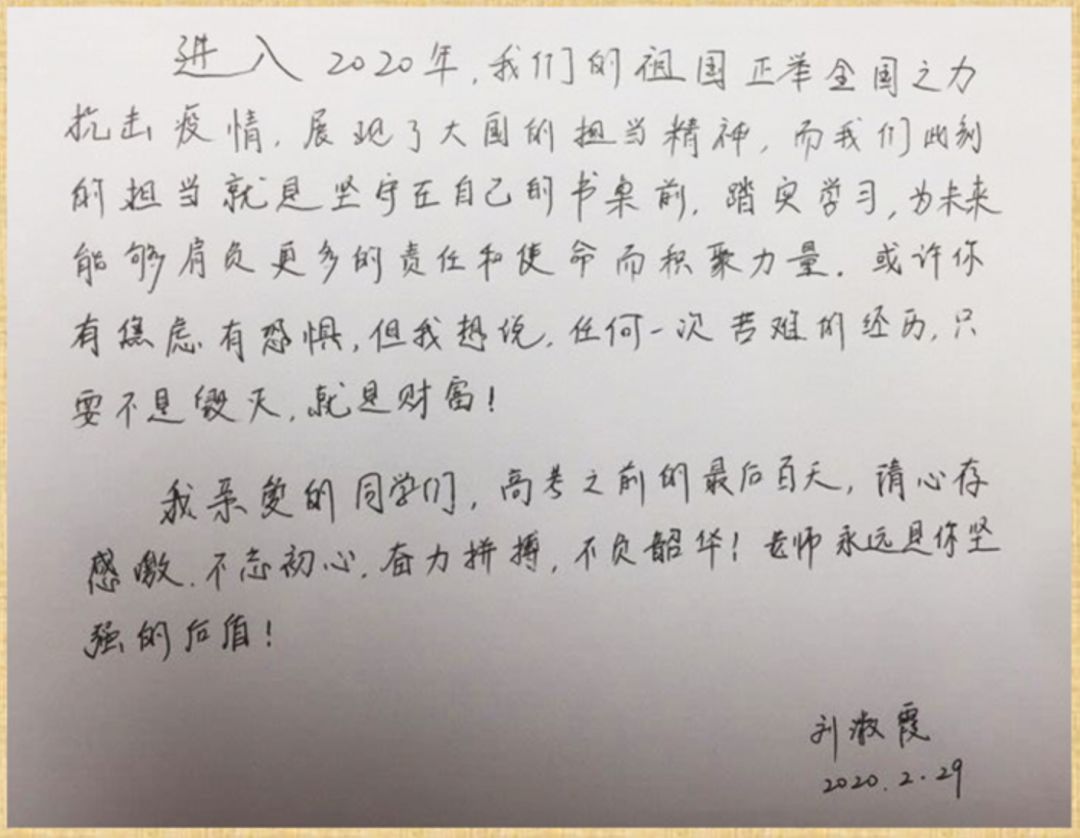 进入2020年,我们的祖国正举全国之力
抗击疫情,展现了大国的担当精神,而我们此刻
的担当就是坚守在自己的书桌前,踏实学习,为未来
能够肩负更多的责任和使命而积聚力量。或许你
有焦虑有恐惧,但我想说,任何一次苦难的经历,只
要不是毁灭,就是财富!
我亲爱的同学们,高考之前的最后百天,请心存
感激,不忘初心,奋力拼搏,不负韶华!老师永远是你坚
强的后盾!
刘淑霞
2020.2.29